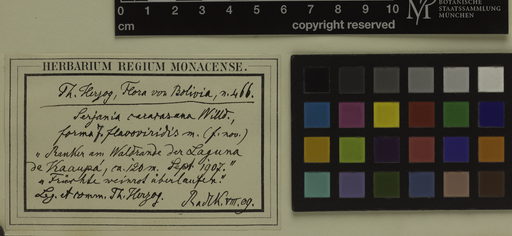 0 1 2 3 4 5 6 7 8 9 10
cm copyright reserved
BOTANISCHE
STAATSSAMMLUNG
MÜNCHEN
HERBARIUM REGIUM MONACENSE.
Th. Herzog, Flora von Bolivia, n. 466.
Serjania caracasana Willd.,
forma 7. flavoviridis m. (f. nov.)
„Ranker am Waldrande der Laguna
de Yaaupa, ca. 120 m. Sept. 1907."
„Früchte weinrot überlaufen."
Leg. et comm. Th. Herzog. Radlk. VIII. 09.